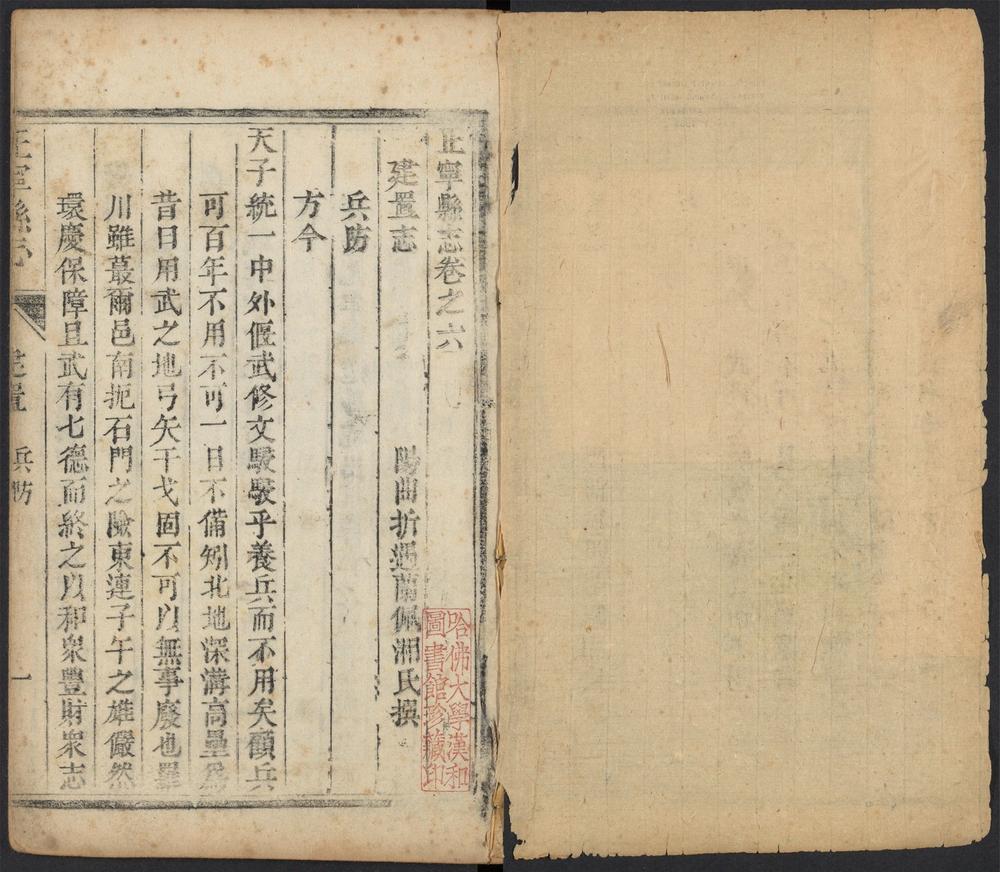 正寧縣志卷之六
建置志
陽曲折遇蘭佩湘氏撰
兵防
方今
天子統一中外偃武修文駸駸乎養兵而不用矣顧兵
可百年不用不可一日不備矧北地深溝高壘為
昔日用武之地弓矢干戈固不可以無事廢也羅
川雖蕞爾邑南扼石門之險東連子午之雄儼然
環慶保障且武有七德而終之以和眾豐財眾志
正寧縣志
建置
兵防
一
哈佛大學漢和
圖書館珍藏印